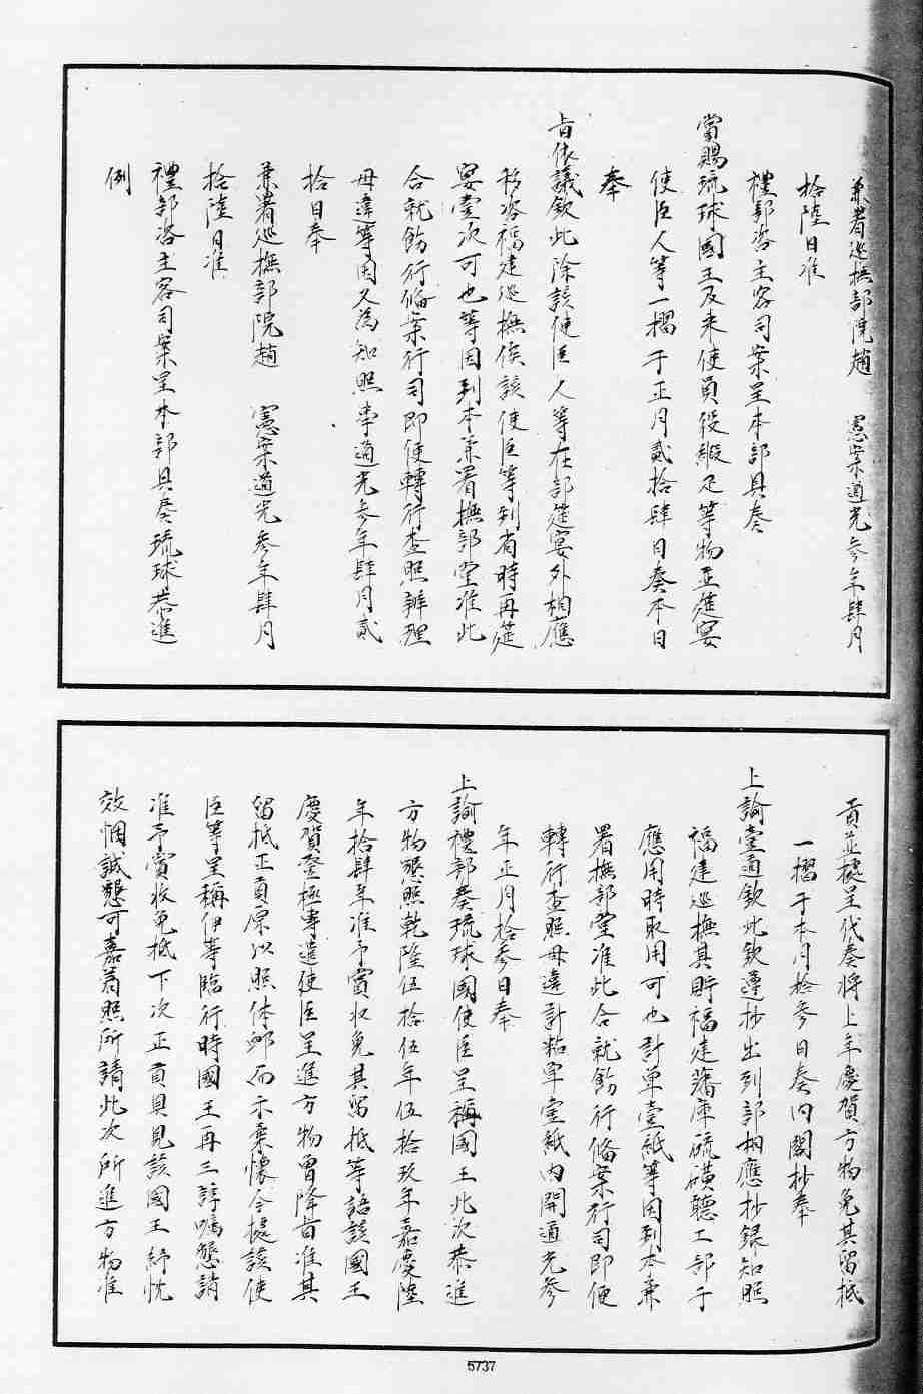 兼署巡撫部院趙 憲案道光參年肆月
拾陸日准
禮部咨主客司案呈本部具奏
當賜琉球國王及来使員役緞疋等物並筵宴
使臣人等一摺于正月貳拾肆日奏本日
奉
旨依議欽此除該使臣人等在部筵宴外相應
移咨福建巡撫俟該使臣等到省時再筵
宴壹次可也等因到本兼署撫部堂准此
合就飭行俻案行司即便轉行查照辦理
毋違等因又為知照事道光參年肆月貳
拾日奉
兼署巡撫部院趙 憲案道光參年肆月
拾陸日准
禮部咨主客司案呈本部具奏琉球恭進
例
貢並據呈代奏將上年慶賀方物免其留抵
一摺于本月拾參日奏內閣抄奉
上諭壹道欽此欽遵抄出到部相應抄錄知照
福建巡撫其貯福建藩庫硫磺聽工部于
應用時取用可也計单壹紙等因到本兼
署撫部堂准此合就飭行俻案行司即便
轉行查照毋違計粘单壹紙內開道光參
年正月拾參日奉
上諭禮部奏琉球國使臣呈稱國王此次恭進
方物懇照乾隆伍拾伍年伍拾玖年嘉慶陸
年拾肆年准予賞收免其留抵等語該國王
慶賀登極專遣使臣呈進方物曾降旨准其
留抵正貢原以照体䘏而示柔懷今據該使
臣等呈稱伊等臨行時國王再三諄囑懇請
准予賞收免抵下次正貢具見該國王紓忱
效悃誠懇可嘉着照所請此次所進方物准
5737